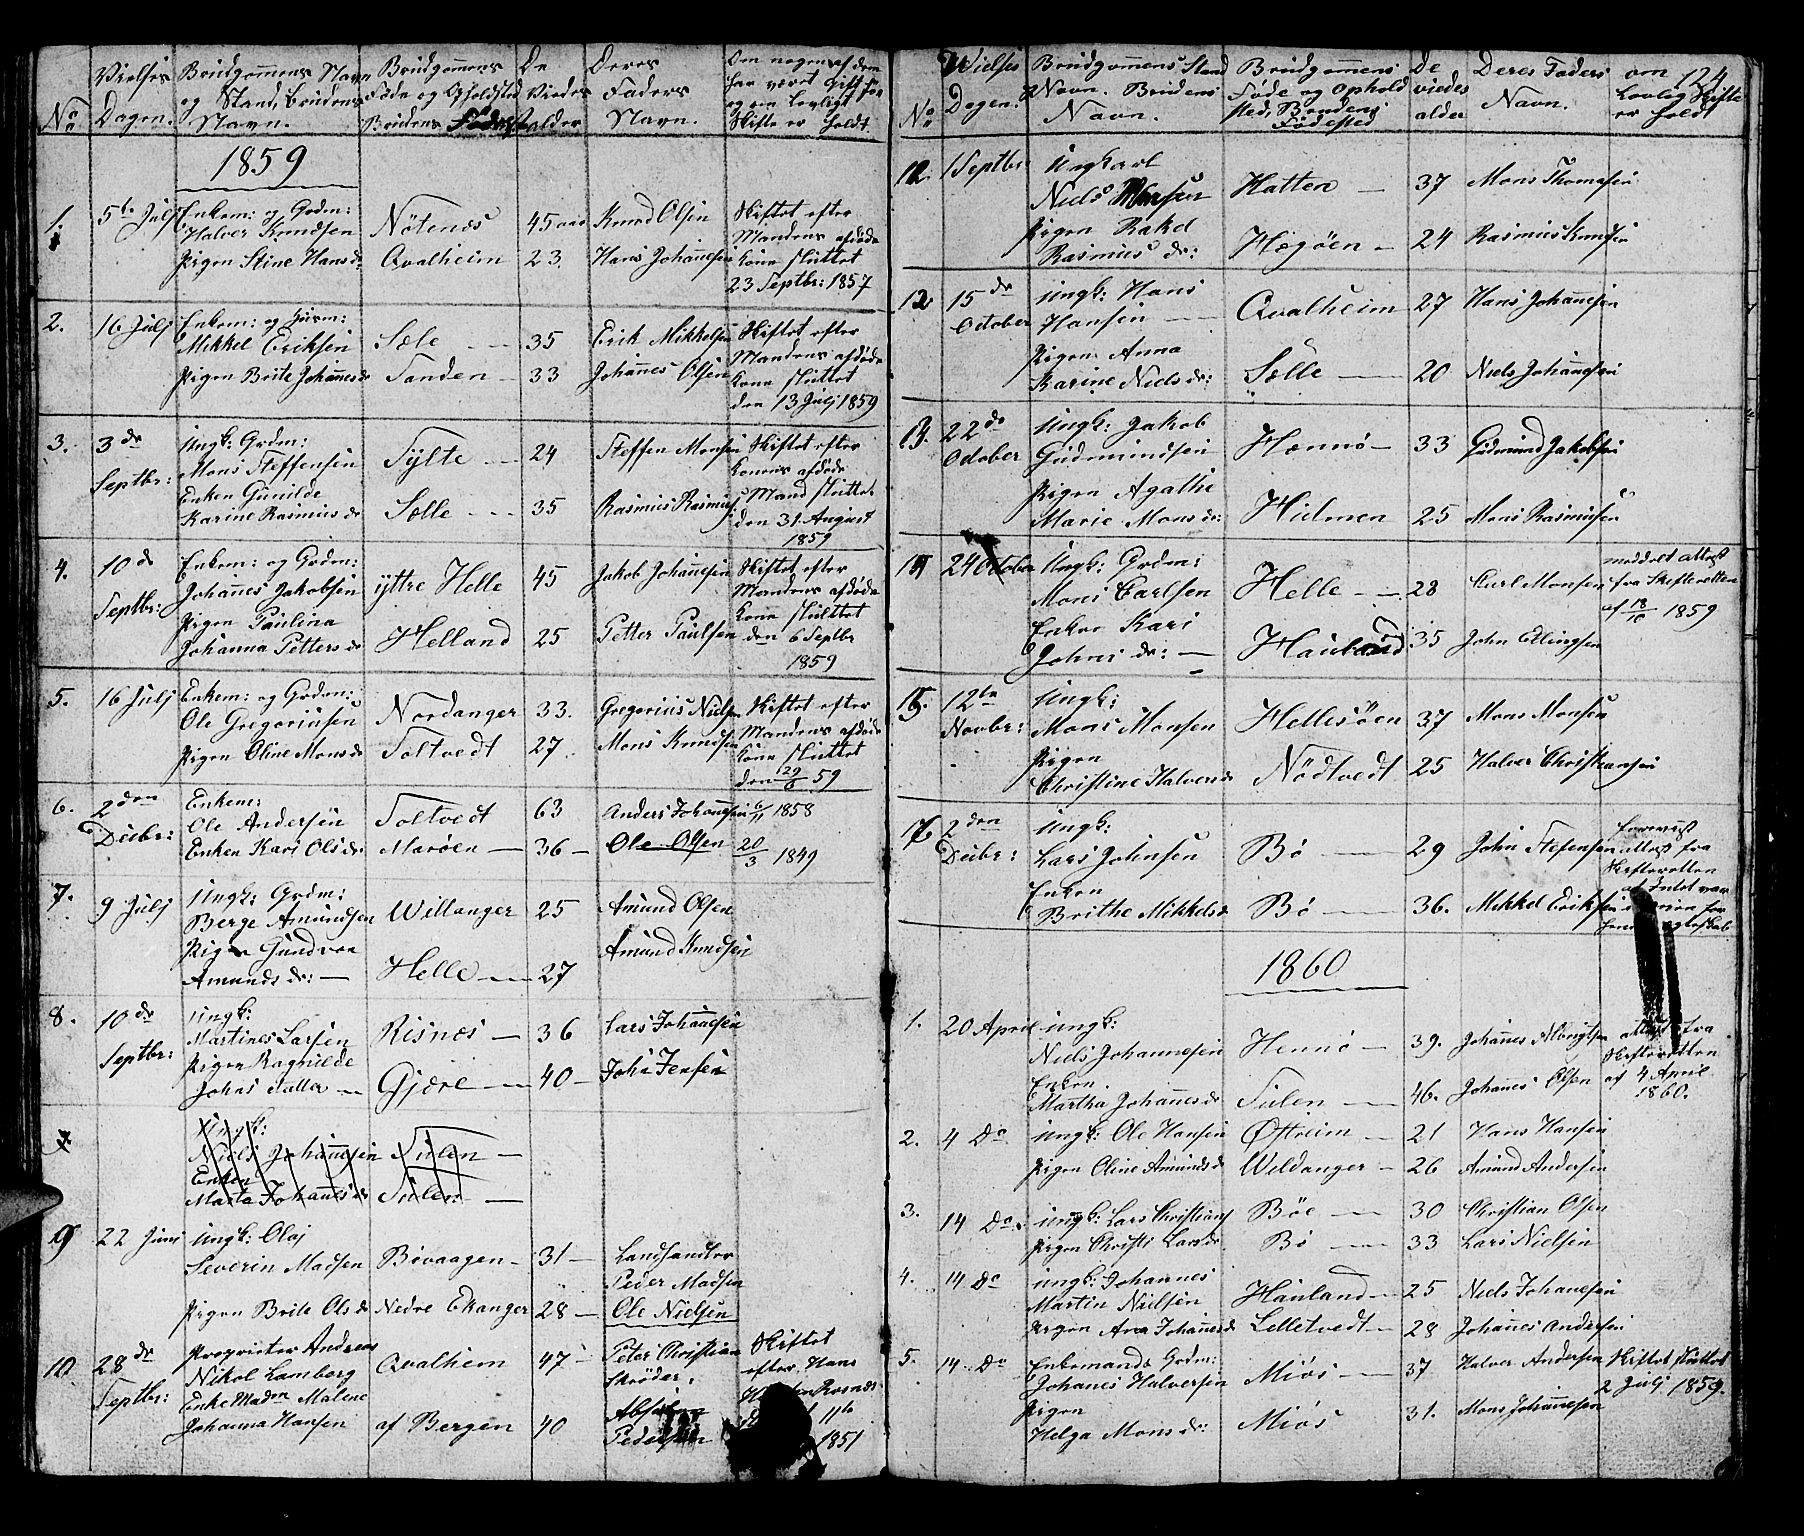 No
Vielses Dagen.
Brudgommens Navn og Stand, Brudens Navn.
Brudgommens Føde og Opholdsted Brudens Fødested
De Viedes alder
Deres Faders Navn.
Om nogen af dem har været Gift før og om lovligt Skifte er holdt.
1859
1. 5te Julj Enkem: og Grdm: Halver Knudsen Nötenes 45 aar Knud Olsen Skiftet efter
Mandens afdøde
Pigen Stine Hansdr Qvalheim 23 Hans Johannesen Kone sluttet
23 Septbr: 1857
2. 16 Julj Enkem: og Huusm:
Mikkel Eriksen Sæle 35 Erik Mikkelsen Skiftet efter
Mandens afdøde
Pigen Brite Johannesdr Sanden 33 Johannes Olsen Kone sluttet
den 13 Julj 1859
3. 3de Septbr: Ungk: Grdm:
Mons Steffensen Sylte 24 Steffen Monsen Skiftet efter
Konens afdøde
Enken Gunilde
Karine Rasmusdr Sælle 35 Rasmus Rasmuss. Mand sluttet
den 31 August
1859
4. 10de Septbr: Enkem: og Grdm:
Johannes Jakobsen yttre Helle 45 Jakob Johannesen Skiftet efter
Mandens afdøde
Pigen Paulina
Johanna Pettersdr Helland 25 Petter Paulsen Kone sluttet
den 6 Septbr
1859
5. 16 Julj Enkem: og Grdm:
Ole Gregoriusen Nordanger 33. Gregorius Nielsen Skiftet efter
Mandens afdøde
Pigen Oline Monsdr Toltvedt 27. Mons Knudsen Kone sluttet
den 29/6 59
6. 2den Decbr: Enkem:
Ole Andersen Toltvedt 63 Anders Johannesen 6/11 1858
Enken Kari Olsdr Marøen 36 Ole Olsen 20/3 1849
7. 9 Julj Ungk: Grdm:
Berge Amundsen Willanger 25 Amund Olsen
Pigen Gundvor
Amundsdr: Helle 27 Amund Knudsen
8. 10de Septbr: Ungk:
Martines Larsen Risnæs 36 Lars Johannesen
Pigen Ragnilde
Johns datter Gjære 40 John Jensen
Ungk:
Niels Johannesen Sulen
Enken
Marta Johannesdr Sulen
9 22 Juni Ungk: Olaj
Severin Madsen Bøvaagen 31 Landhandler
Peder Madsen
Pigen Brite Olsdr Nedre Ekanger 28 Ole Nielsen
10 28de Septbr: Proprietær Andreas
Nikol Lamberg Qvalhem 47 Peter Christian
Skröder. Skiftet
efter Hans
Enke Madm Malene
Johanna Hansen af Bergen 40 Pedersen 11te 1851
124
No
Vielses Dagen.
Brudgommens Stand Navn. Brudens Navn.
Brudgommens Føde og Ophold sted, Brudens Fødested
De viedes alder
Deres Faders Navn.
om Lovlig Skifte er holdt
12. 1 Septbr: Ungkarl
Niels Monsen Hatten 37 Mons Thomasen
Pigen Rakel
Rasmusdr: Hegøen 24 Rasmus Knudsen
12 15de October Ungk: Hans
Hansen Qvalheim 27 Hans Johannesen
Pigen Anna
Karine Nielsdr: Sælle 20 Niels Johannesen
13. 22de October Ungk: Jakob
Gudmundsen Hennø 33 Gudmund Jakobsen
Pigen Agathe
Marie Monsdr: Hidmen 25 Mons Rasmusen
14 24 October Ungk: Grdm:
Mons Carlsen Helle 28 Carl Monsen
meddelt attest
fra Skifteretten
af 18/10 1859
Enken Kari
Johnsdr: Hauland 35 John Ellingsen
15. 12te Novbr: Ungk:
Mons Monsen Hellesøen 37 Mons Monsen
Pigen
Christine Halversdr Nödtvedt 25 Halver Christiansen
16 2den Decbr: Ungk:
Lars Johnsen Bö 29 John Stefensen
attest fra
Skifteretten
Enken
Brithe Mikkelsdr Bø 36. Mikkel Eriksen
1860
1. 20 April Ungk:
Niels Johannesen Hennø 39. Johannes
attest fra
Skifteretten
Enken.
Martha Johannesdr Sulen 46. Johanes Olsen
af 4 April
1860.
2. 4 Do Ungk: Ole Hansen Øftreim 21 Hans Hansen
Pigen Oline Amundsdr Wildanger 26 Amund Andersen
3. 14 Do. Ungk: Lars Christians Böe 30 Christian Olsen
Pigen Christi Larsdr Bø 33 Lars Nielsen
4. 14 Do Ungk: Johannes
Martin Nielsen Hauland 25 Niels Johannesen
Pigen Ana Johannesdr Lilletvedt 28 Johannes Andersen
5. 14 Do Enkemands Grdm:
Johanes Halversen Miøs 37 Halver Andersen Skiftet sluttet
2 Julj 1859.
Pigen
Helga Monsdr: Miøs 31. Mons Johannesen